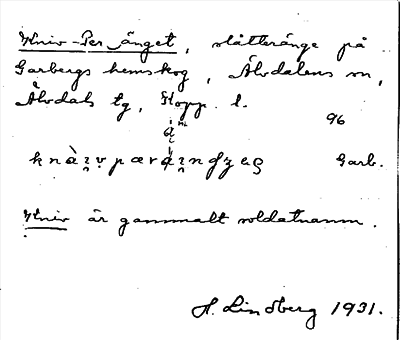 Kniv-Per änget, slåtteränge på
Garbergs hemskog, Älvdalens sn,
Älvdals tg, Kopp. l.
96
Garb.
Kniv är gammalt soldatnamn.
H. Lindberg 1931.